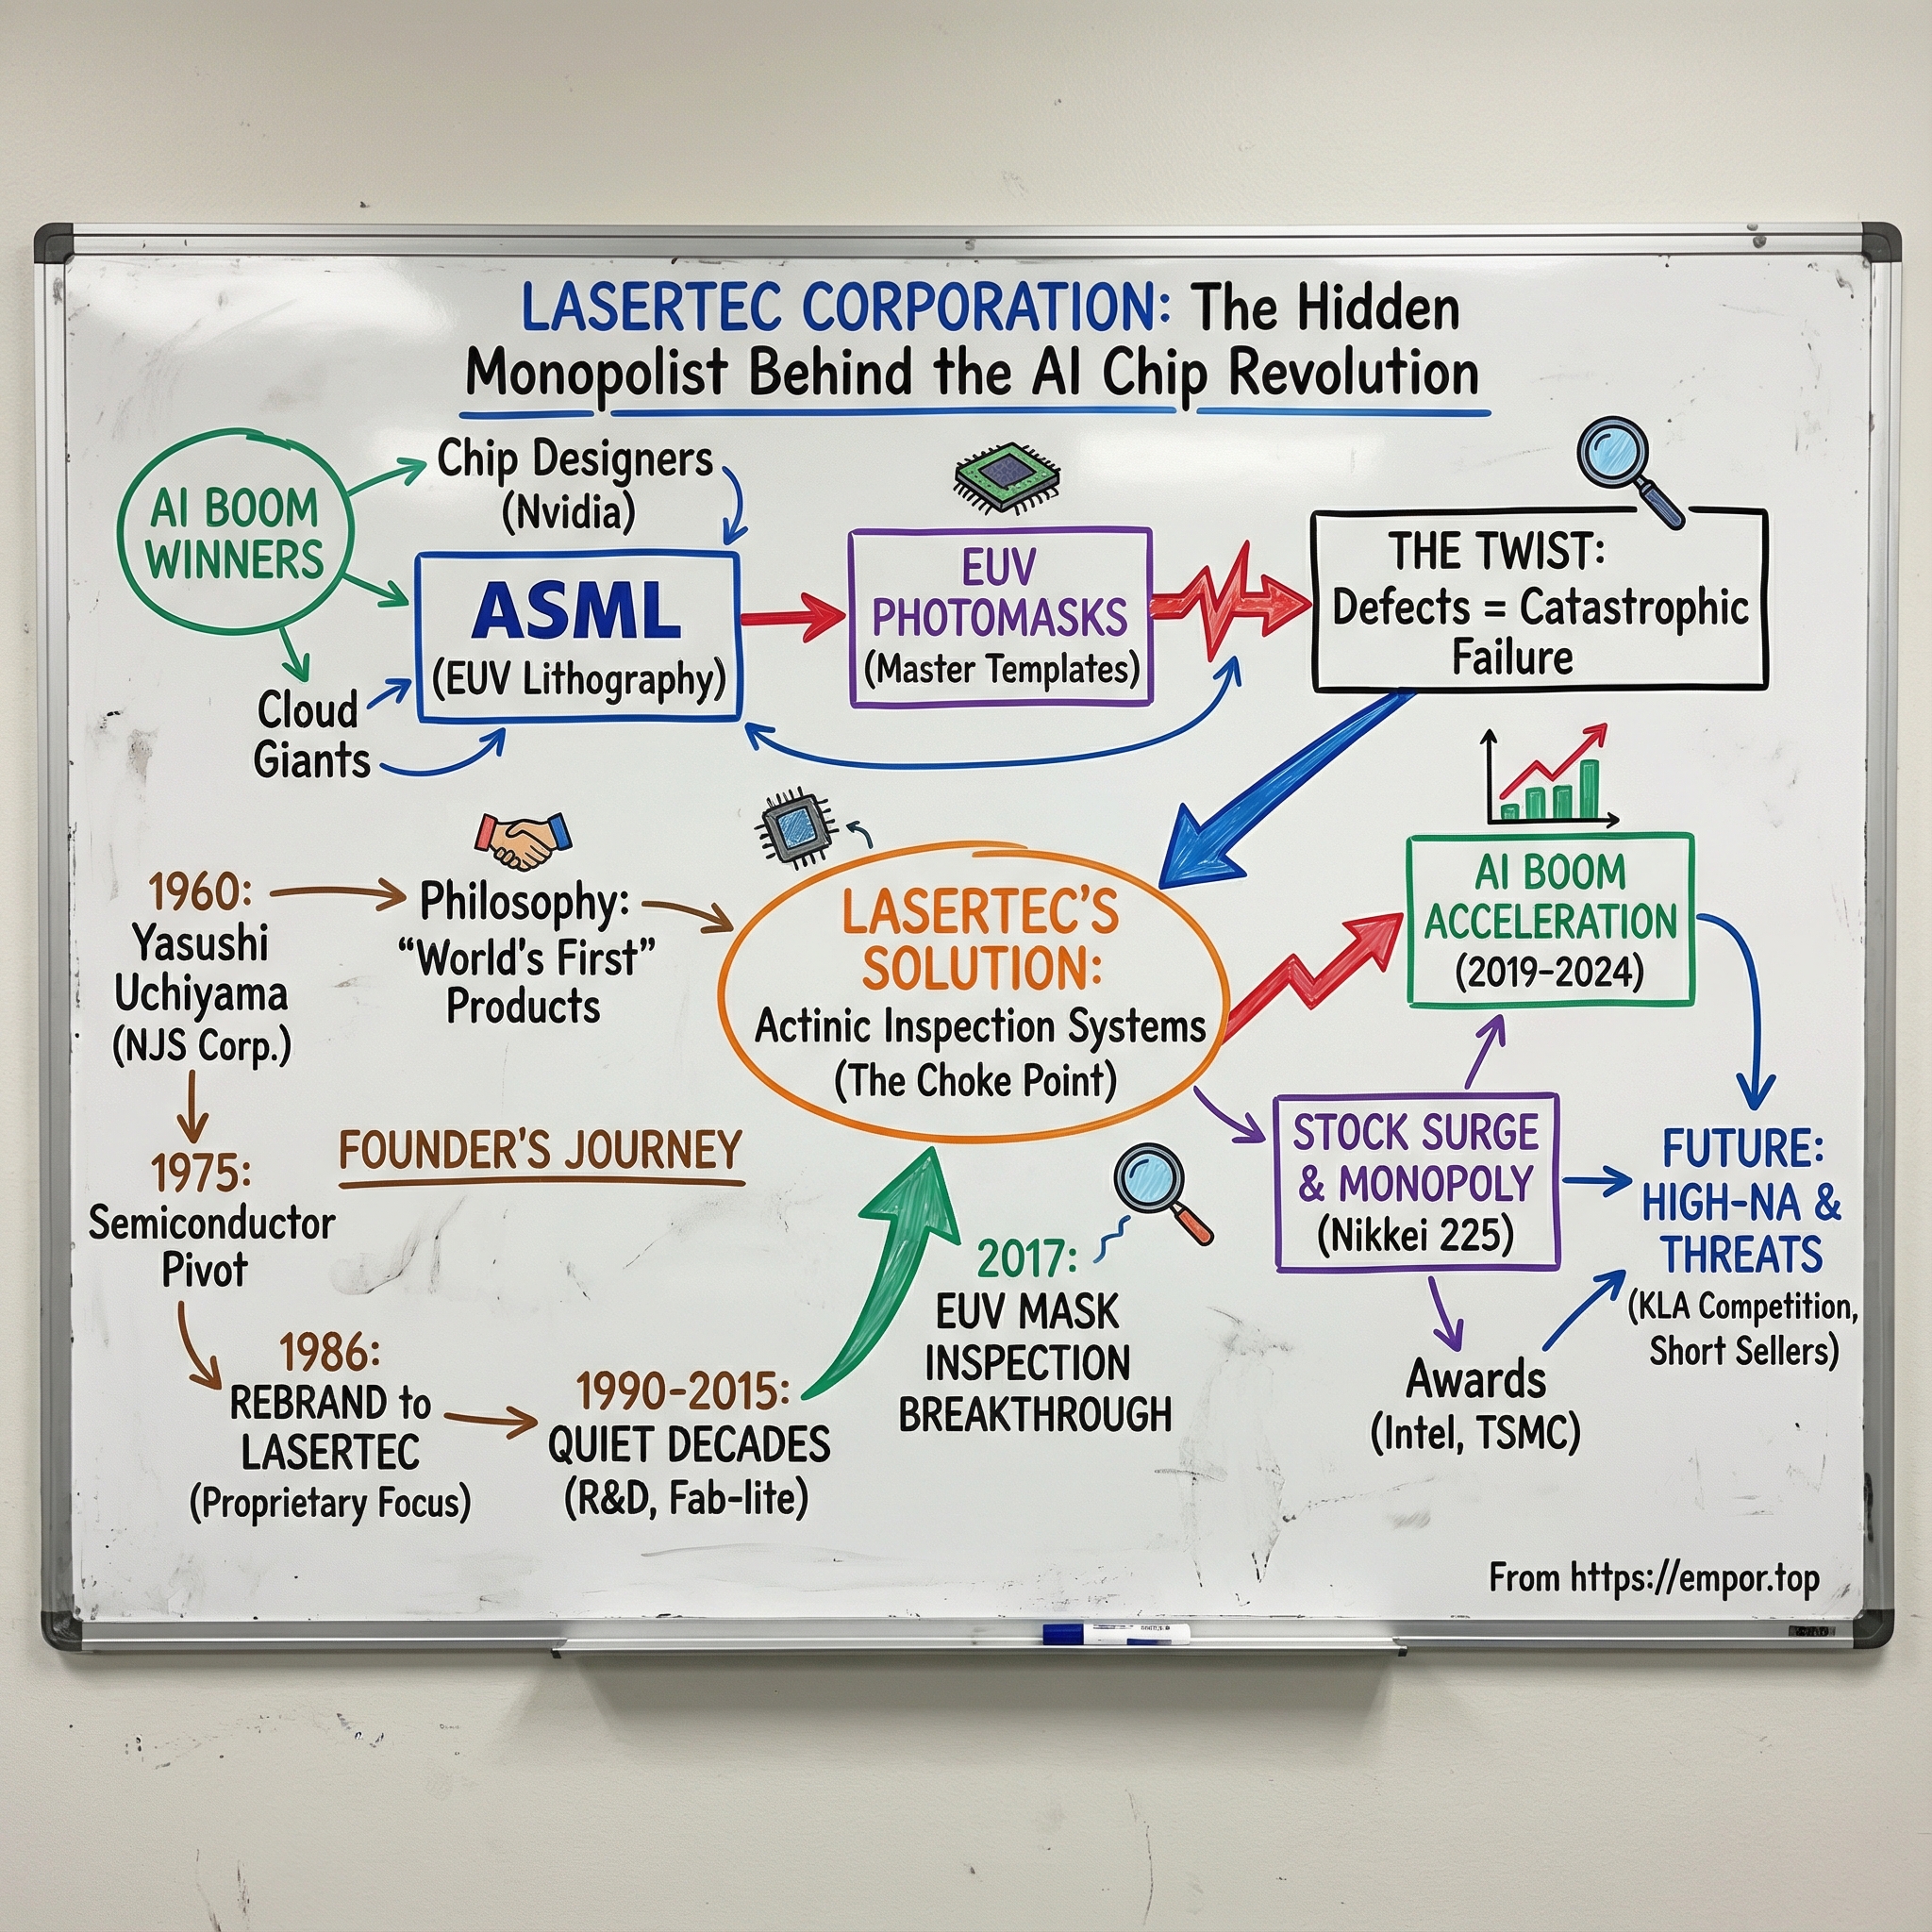 LASERTEC CORPORATION: The Hidden
Monopolist Behind the AI Chip Revolution
AI BOOM
WINNERS
Chip Designers
(Nvidia)
ASML
(EUV Lithography)
Cloud
Giants
EUV
PHOTOMASKS
(Master Templates)
THE TWIST:
Defects = Catastrophic
Failure
1960:
Yasushi
Uchiyama
(NJS Corp.)
Philosophy:
“World's First”
Products
LASERTEC'S
SOLUTION:
Actinic Inspection Systems
(The Choke Point)
AI BOOM
ACCELERATION
(2019-2024)
FOUNDER'S JOURNEY
1975:
Semiconductor
Pivot
1986:
REBRAND to
LASERTEC
(Proprietary Focus)
1990-2015:
QUIET DECADES
(R&D, Fab-lite)
2017:
EUV MASK
INSPECTION
BREAKTHROUGH
STOCK SURGE
& MONOPOLY
(Nikkei 225)
Awards
(Intel, TSMC)
FUTURE:
HIGH-NA &
THREATS
(KLA Competition,
Short Sellers)
From https://empor.top